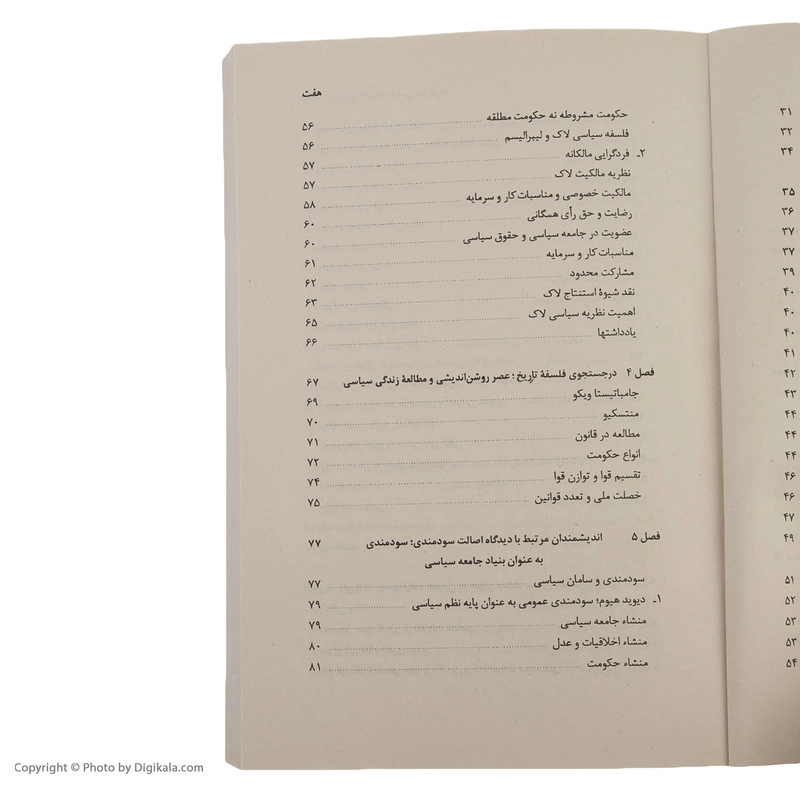 هفت
حکومت مشروطه نه حکومت مطلقه ۵۶
فلسفه سیاسی لاک و لیبرالیسم ۵۶
۲ـ فردگرایی مالکانه ۵۷
نظریه مالکیت لاک ۵۷
مالکیت خصوصی و مناسبات کار و سرمایه ۵۸
رضایت و حق رأی همگانی ۶۰
عضویت در جامعه سیاسی و حقوق سیاسی ۶۰
مناسبات کار و سرمایه ۶۱
مشارکت محدود ۶۲
نقد شیوهٔ استنتاج لاک ۶۳
اهمیت نظریه سیاسی لاک ۶۵
یادداشتها ۶۶
فصل ۴ درجستجوی فلسفهٔ تاریخ؛ عصر روشن‌اندیشی و مطالعهٔ زندگی سیاسی ۶۷
جامباتیستا ویکو ۶۹
منتسکیو ۷۰
مطالعه در قانون ۷۱
انواع حکومت ۷۲
تقسیم قوا و توازن قوا ۷۴
خصلت ملی و تعدد قوانین ۷۵
فصل ۵ اندیشمندان مرتبط با دیدگاه اصالت سودمندی؛ سودمندی ۷۷
به عنوان بنیاد جامعه سیاسی
سودمندی و سامان سیاسی ۷۷
۱ـ دیوید هیوم؛ سودمندی عمومی به عنوان پایه نظم سیاسی ۷۹
منشاء جامعه سیاسی ۷۹
منشاء اخلاقیات و عدل ۸۰
منشاء حکومت ۸۱
۳۱
۳۲
۳۴
۳۵
۳۶
۳۷
۳۷
۳۹
۴۰
۴۰
۴۰
۴۱
۴۲
۴۳
۴۴
۴۴
۴۴
۴۶
۴۶
۴۷
۴۹
۵۱
۵۲
۵۳
۵۳
۵۴
Copyright © Photo by Digikala.com